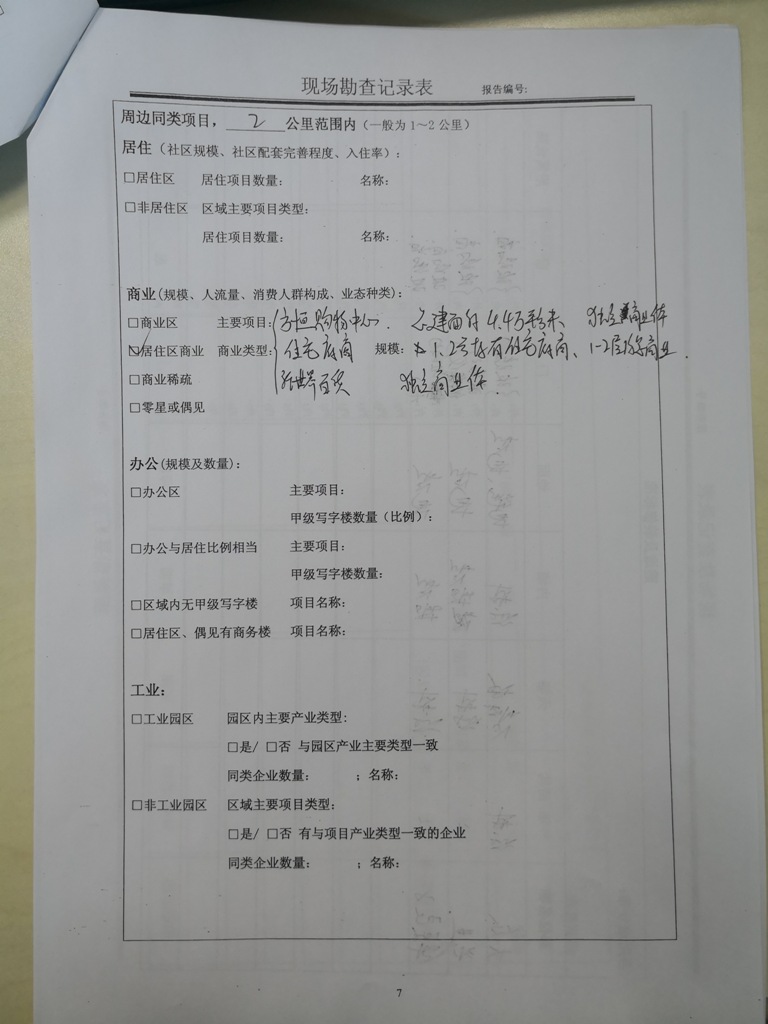 现场勘查记录表 报告编号:
周边同类项目，2公里范围内（一般为1～2公里）
居住（社区规模、社区配套完善程度、入住率）:
□居住区 居住项目数量: 名称:
□非居住区 区域主要项目类型:
居住项目数量: 名称:
商业(规模、人流量、消费人群构成、业态种类):
□商业区 主要项目: 方恒购物中心. 建面约4.4万平米 独立商业体
☑居住区商业 商业类型: 住宅底商 规模: 1.2号 有住宅底商、1-2层 商业.
□商业稀疏 百货 独立商业体.
□零星或偶见
办公(规模及数量):
□办公区 主要项目:
甲级写字楼数量（比例）:
□办公与居住比例相当 主要项目:
甲级写字楼数量:
□区域内无甲级写字楼 项目名称:
□居住区、偶见有商务楼 项目名称:
工业:
□工业园区 园区内主要产业类型:
□是/ □否 与园区产业主要类型一致
同类企业数量: ；名称:
□非工业园区 区域主要项目类型:
□是/ □否 有与项目产业类型一致的企业
同类企业数量: ；名称:
7